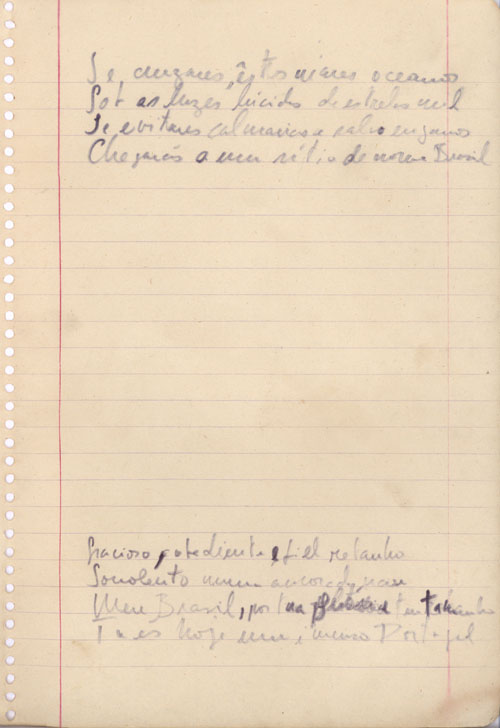 Se cruzares êstes mares oceanos
Sob as luzes, lúcidas de estrelas mil
Se evitares calmarias e salvo enganos
Chegarás a um sítio de nome Brasil
Gracioso, obediente, fiel rebanho
Sonolento numa ancorada nau
Meu Brasil, por tamanho
Tu es hoje um, imenso Portugal